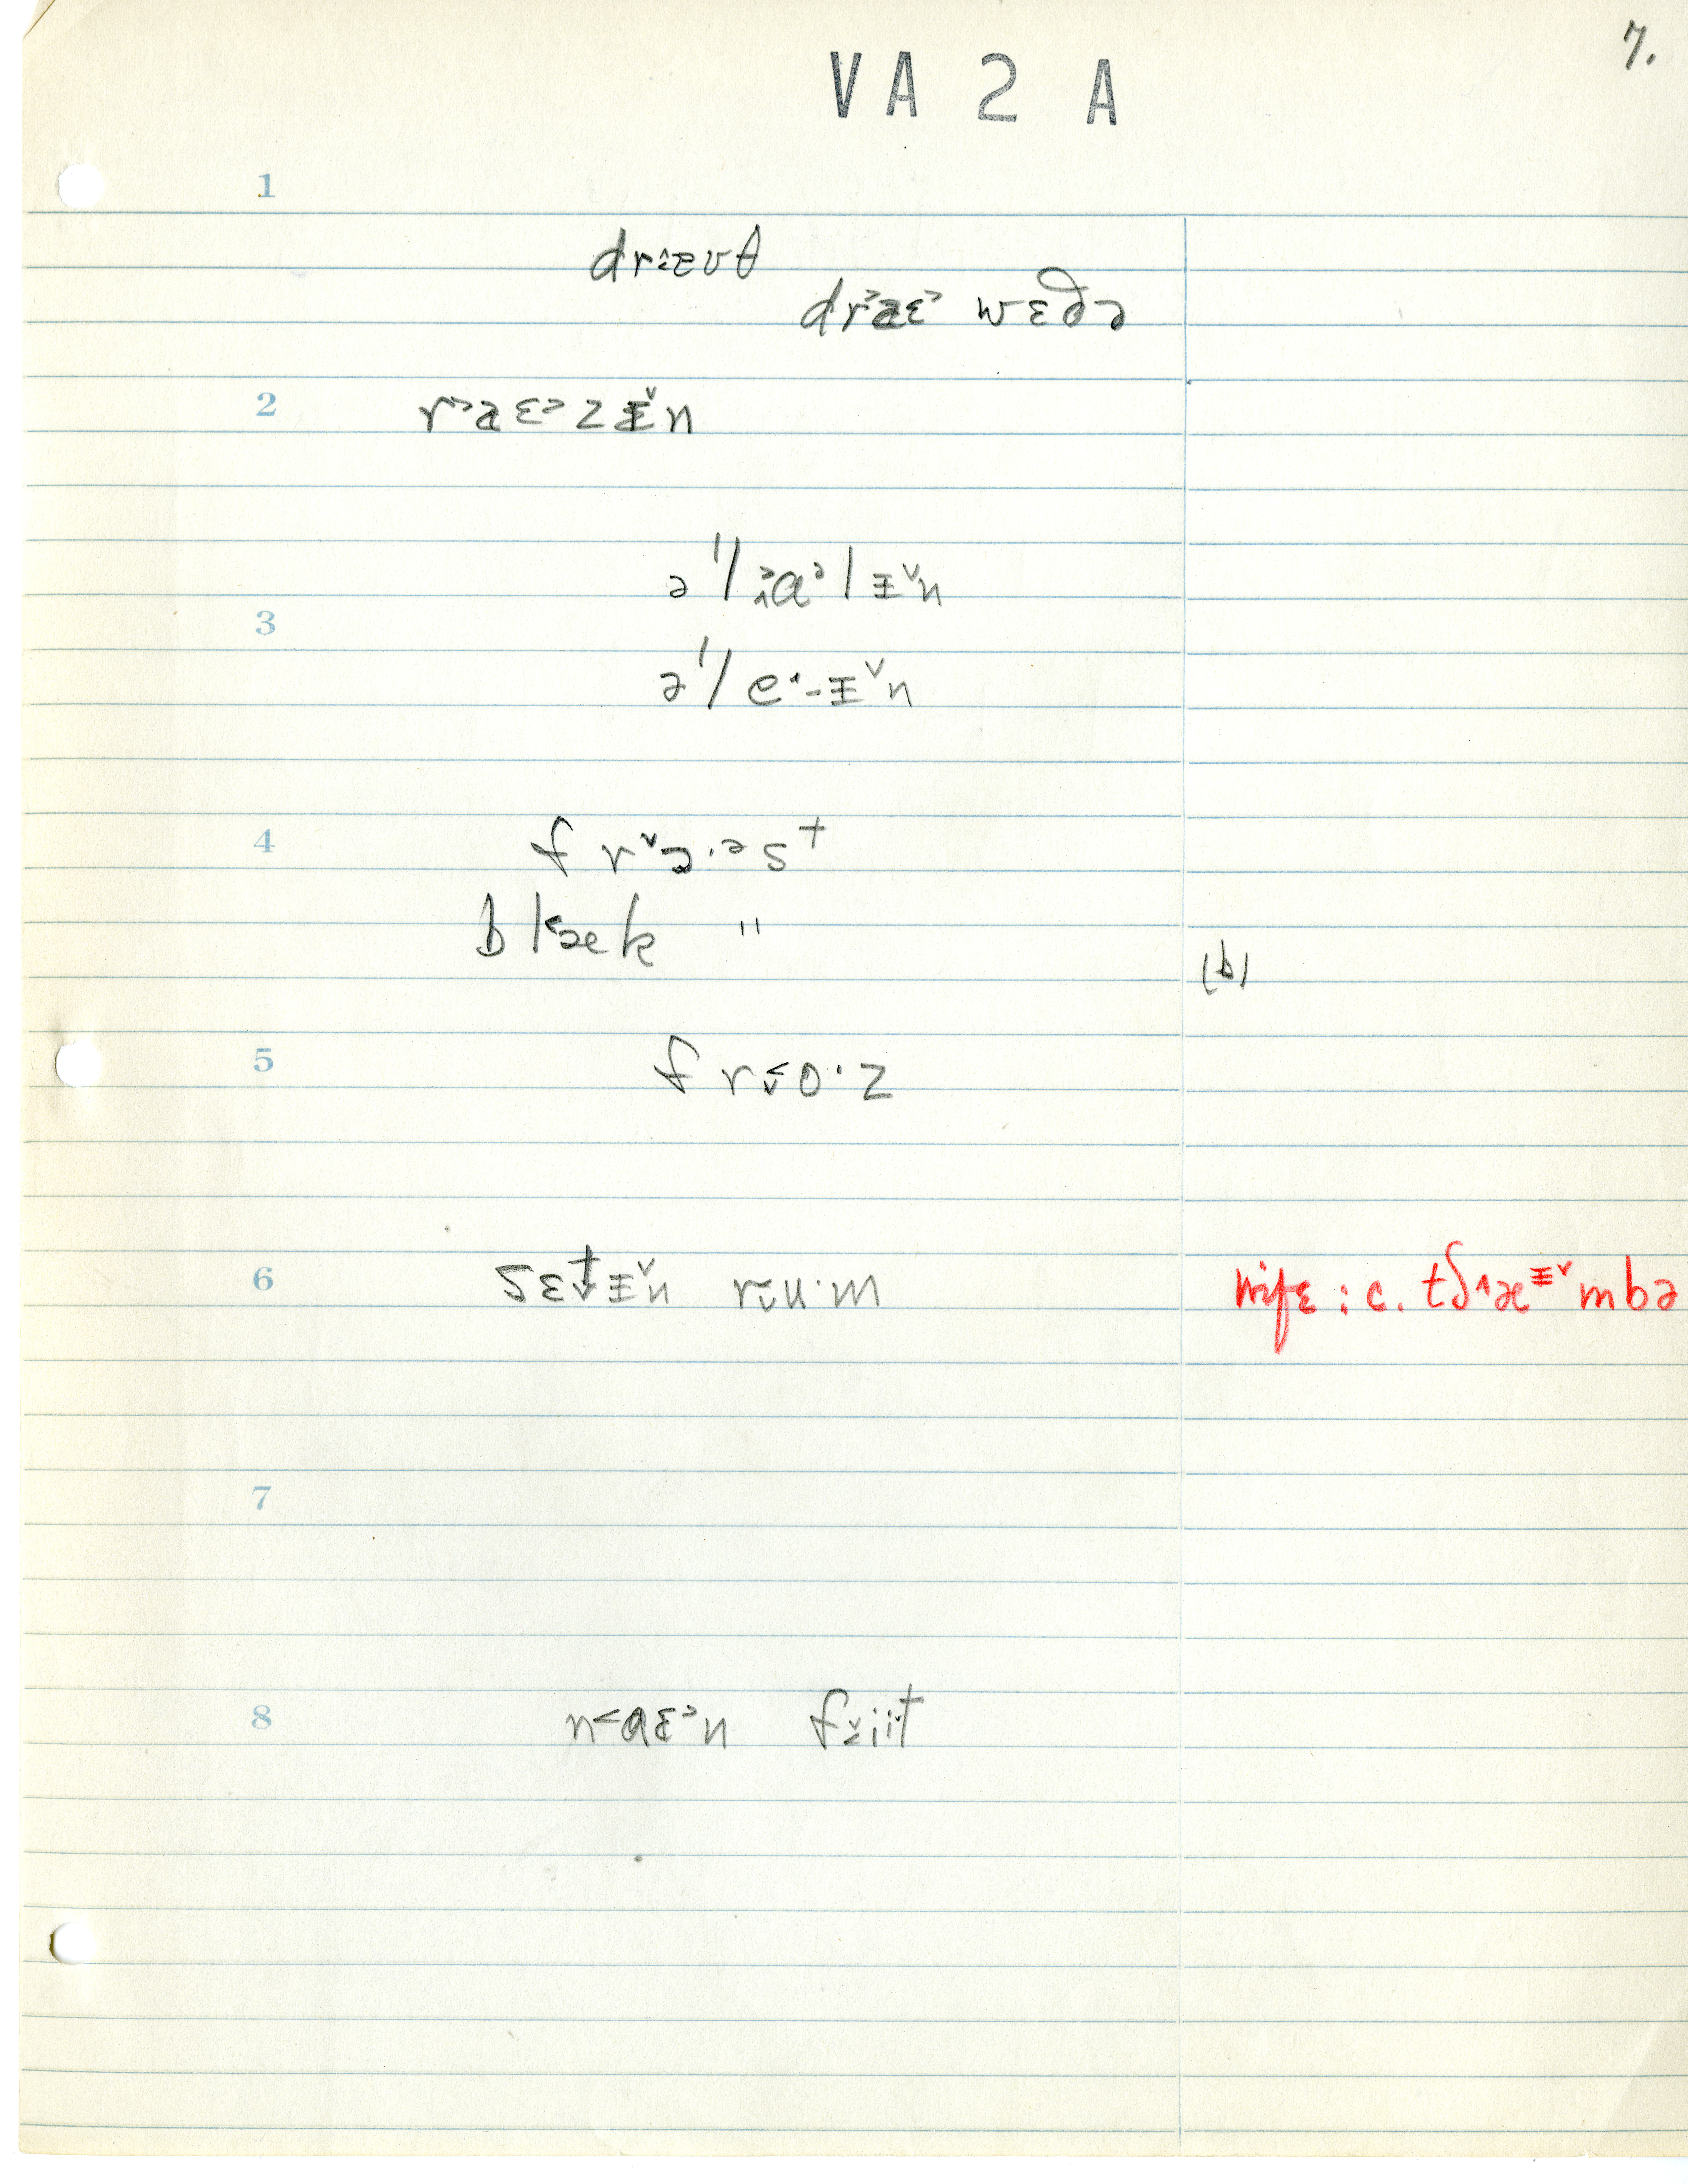 7.
VA 2 A
1
drɐʊt
draɛ wɛðə
2 raɛzɪ̵̌n
ə'/ɑ/ɪ̵̌n
3
ə'/e·-ɪ̵̌n
4 frɔ·əst
blæk "
(b)
5 fro·z
6 sɛtɪ̵̌n ru·m wife : c. tʃæɪ̵̌mbə
7
8 n˂aɛ˃n fiit